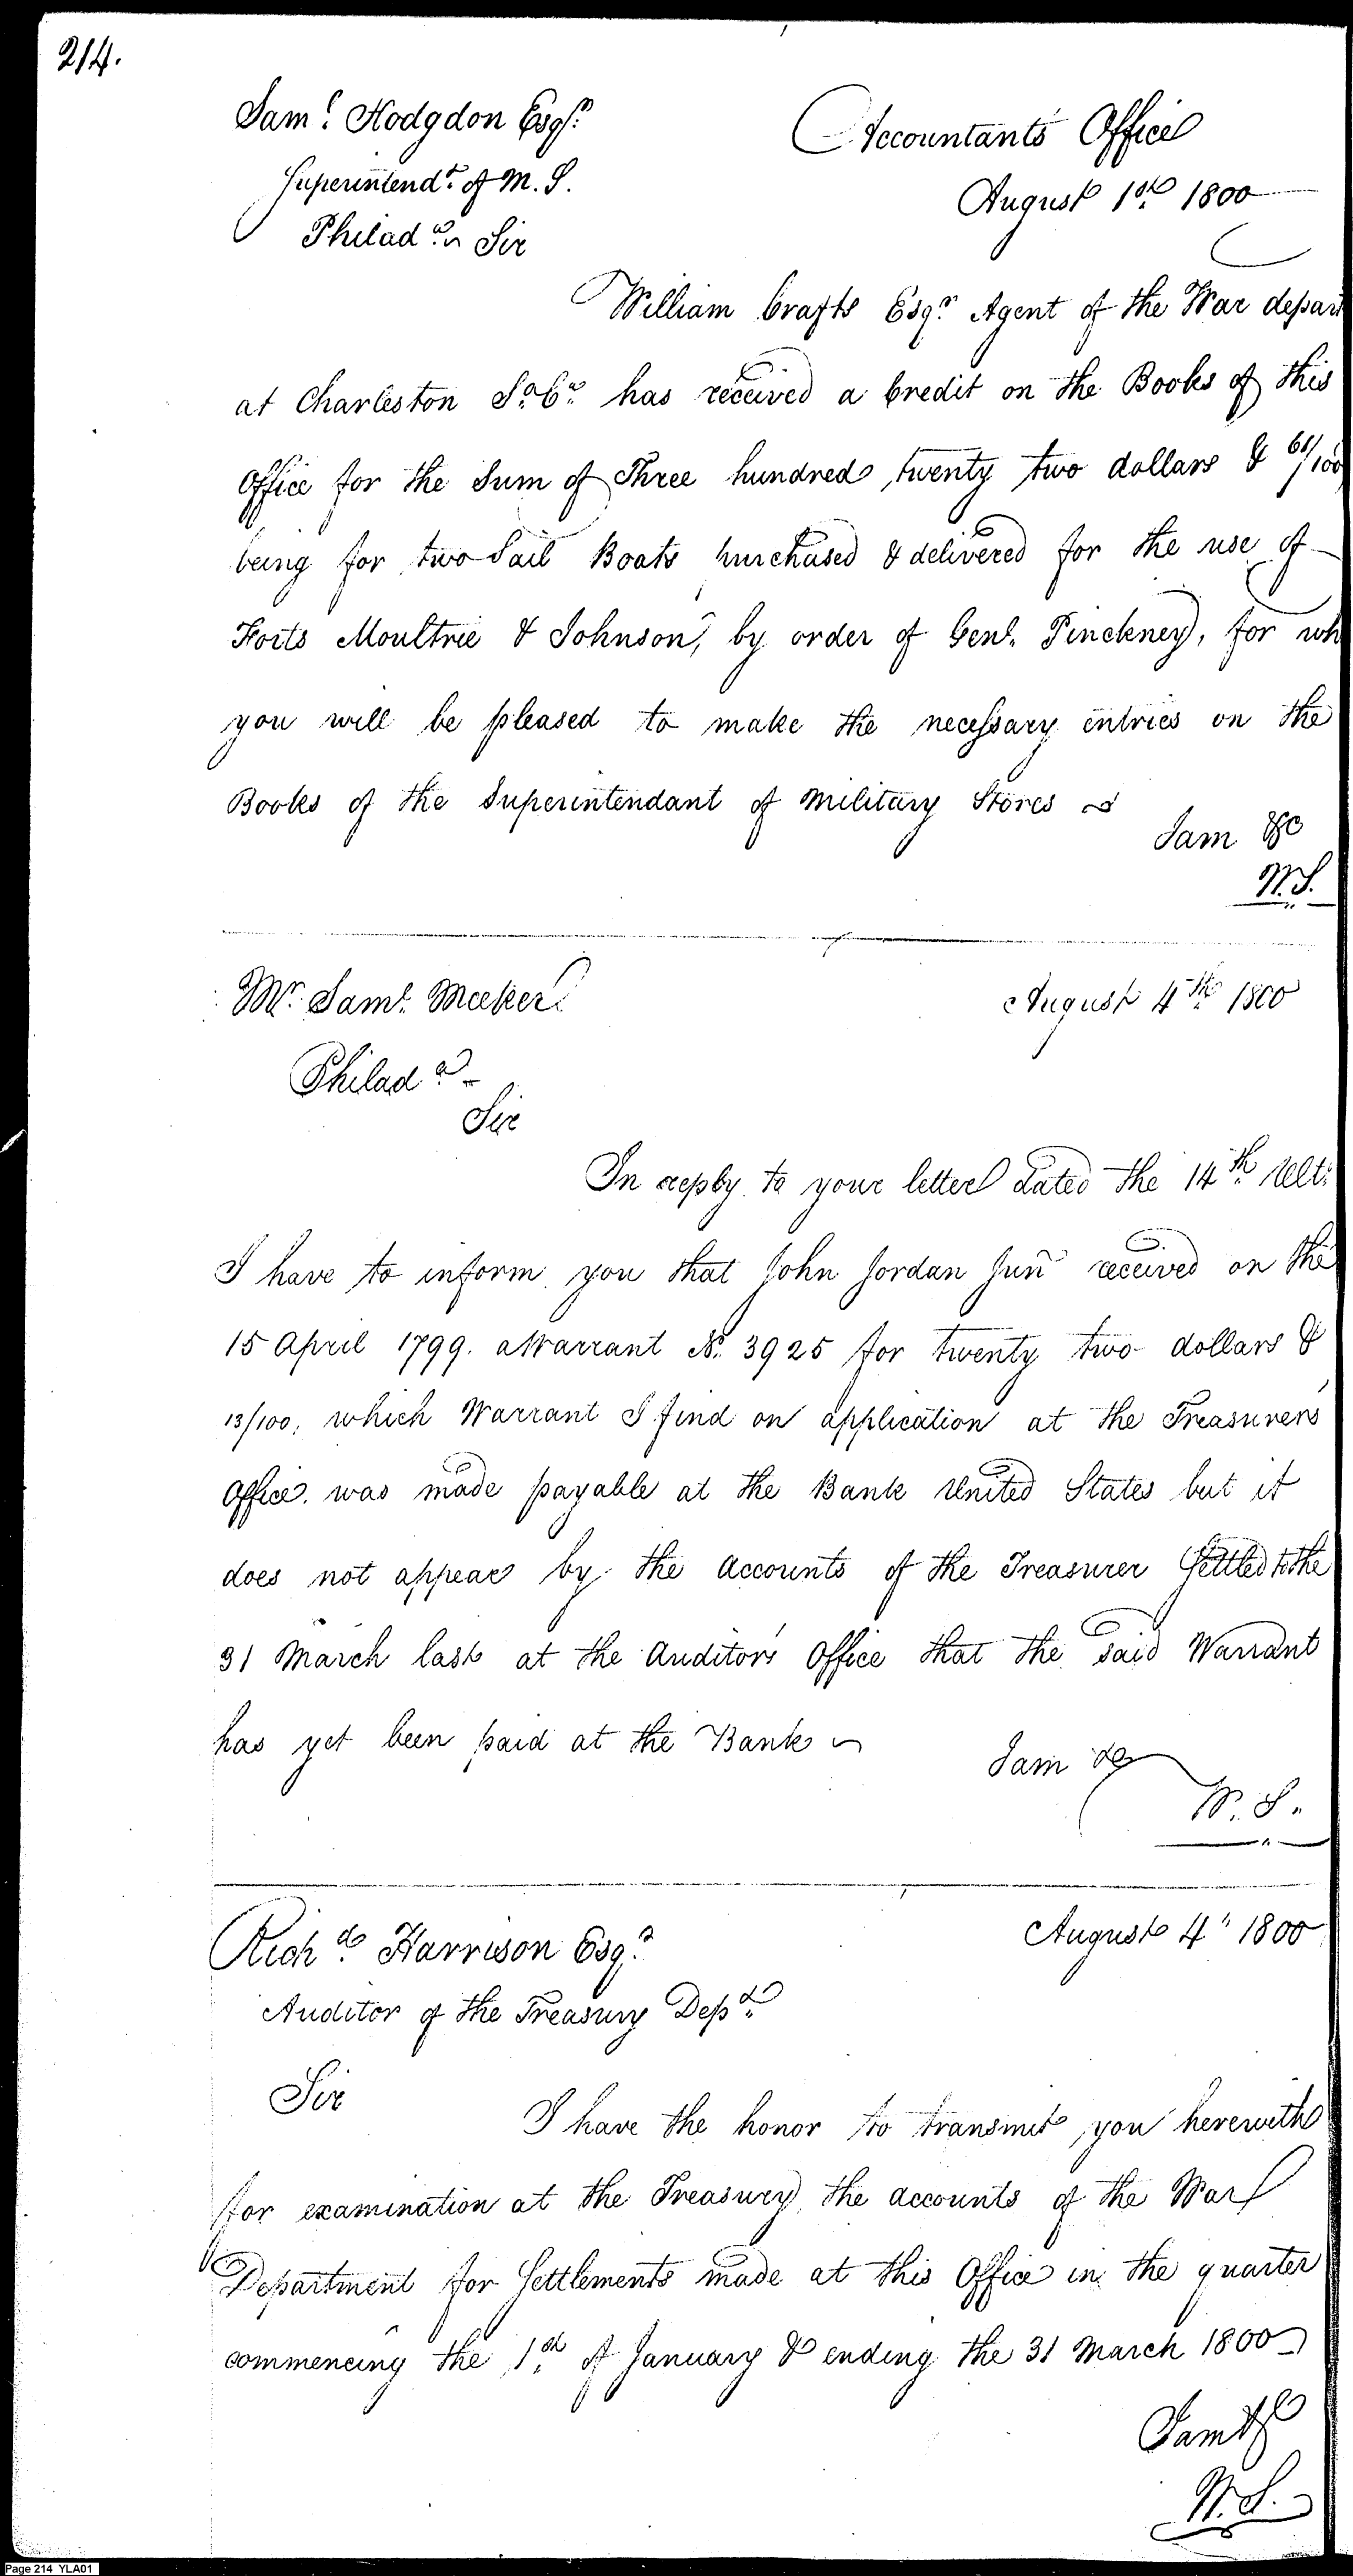 214.
Saml. Hodgdon Esqr.
Accountants Office
Superintendt. of M. S.
August 1st. 1800
Philada. Sir
William Crafts Esqr. Agent of the War depart
at Charleston So. Ca. has received a Credit on the Books of this
Office for the Sum of Three hundred, twenty two dollars & /100
being for two Sail Boats purchased & delivered for the use of
Forts Moultrie & Johnson, by order of Genl. Pinckney, for wh
you will be pleased to make the necessary entries on the
Books of the Superintendant of Military Stores
I am &c
W. S.
Mr. Saml. Meeker
August 4th. 1800
Philada.
Sir
In reply to your letter dated the 14th. Ult:
I have to inform you that John Jordan Junr received on the
15 April 1799. a Warrant No. 3925 for twenty two dollars &
13/100, which Warrant I find on application at the Treasurers
Office. was made payable at the Bank United States but it
does not appear by the accounts of the Treasurer Settled to the
31 March last at the Auditors Office that the said Warrant
has yet been paid at the Bank
I am &c
W. S.
Richd. Harrison Esqr.
August 4" 1800
Auditor of the Treasury Dept.
Sir
I have the honor to transmit you herewith
for examination at the Treasury, the accounts of the War
Department for Settlements made at this Office in the quarter
commencing the 1st. of January & ending the 31 March 1800
I am &c
W. S.
Page 214 YLA01